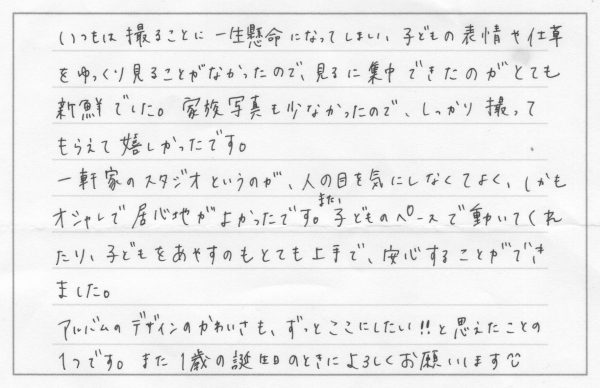 いつもは撮ることに一生懸命になってしまい、子どもの表情や仕草
をゆっくり見ることがなかったので、見るに集中できたのがとても
新鮮でした。家族写真も少なかったので、しっかり撮って
もらえて嬉しかったです。
一軒家のスタジオというのが、人の目を気にしなくてよく、しかも
オシャレで居心地がよかったです。また、子どものペースで動いてくれ
たり、子どもをあやすのもとても上手で、安心することができ
ました。
アルバムのデザインのかわいさも、ずっとここにしたい!!と思えたことの
1つです。また1歳の誕生日のときによろしくお願いします